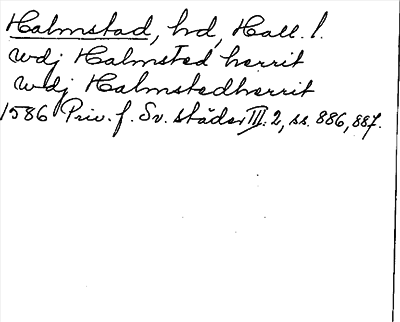 Halmstad, hd, Hall. l.
wdj Halmsted herrit
wdj Halmstedherrit
1586 Priv. f. Sv. städer III. 2, ss. 886, 887.